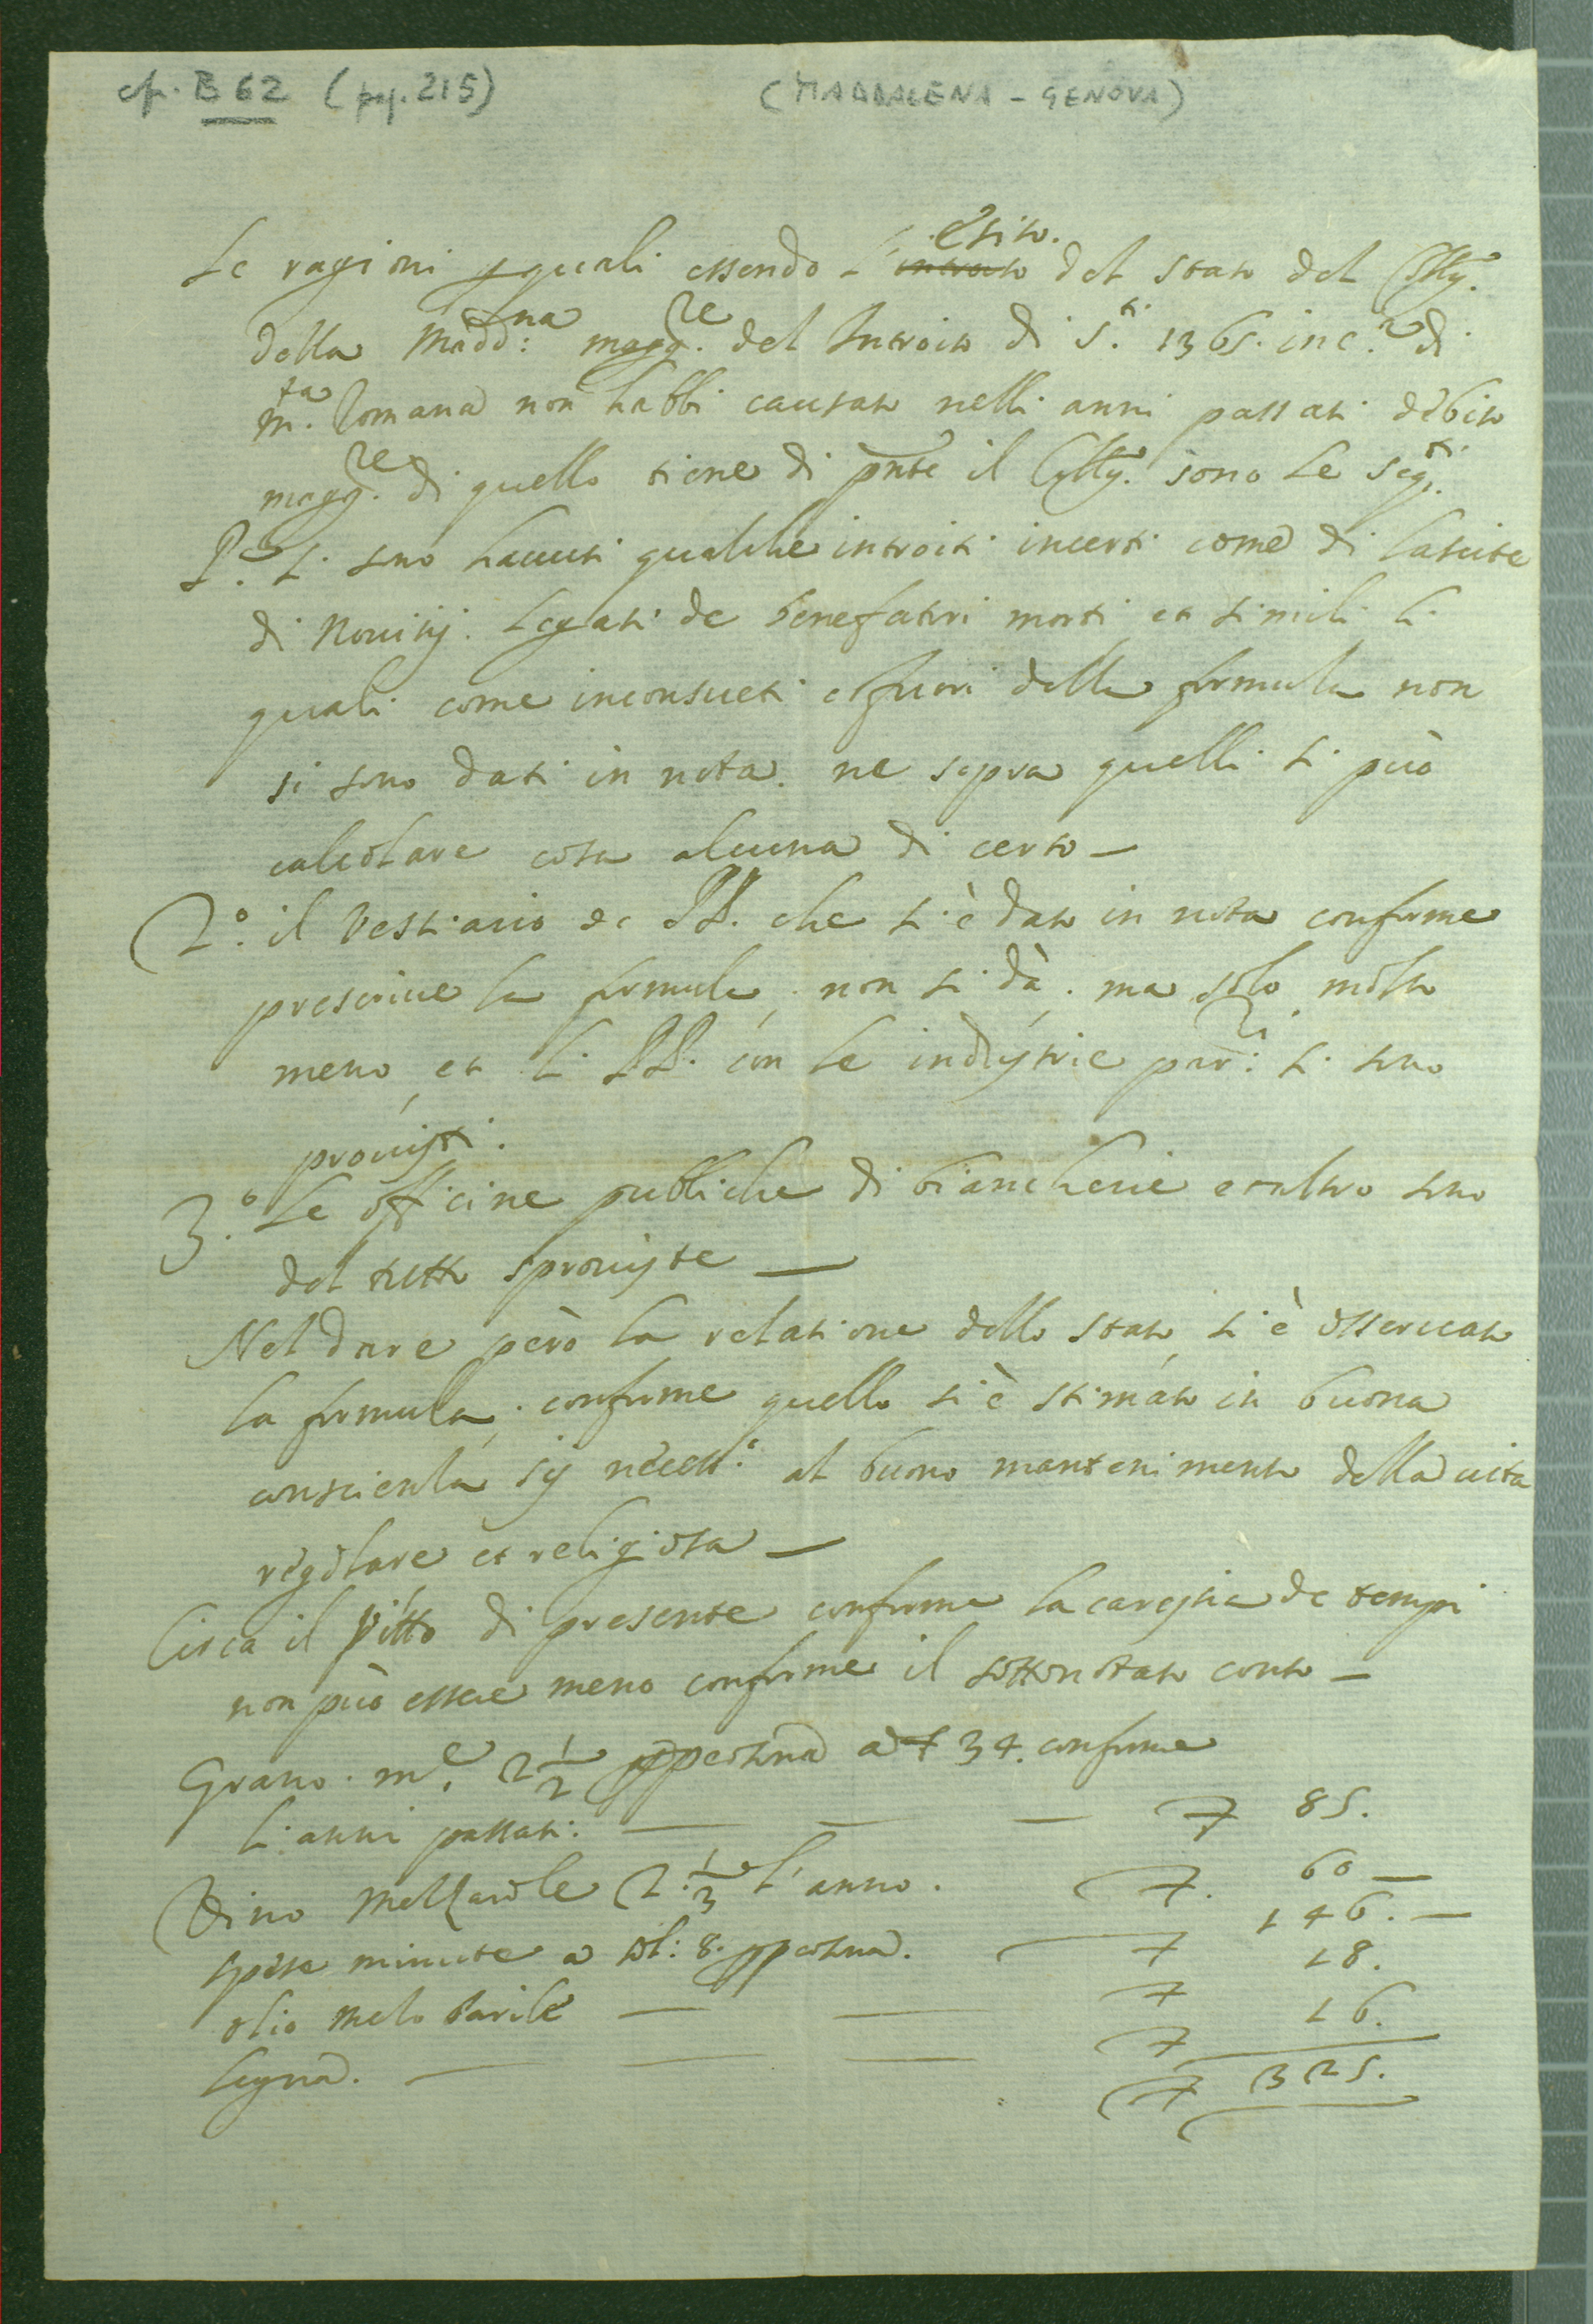 cfr. B 62 (pag. 215) (MADDALENA - GENOVA)
esito.
Le ragioni p quali essendo l'introito del stato del Collg.
della Madd:na magg.re del Introito di S.ti 1365. inc.a di
m.ta Romana non habbi causato nelli anni passati debito
magg.re di quello tiene di pnte il Collg. sono le seg.ti
P.o si sono hauuti qualche introiti incerti come di lascite
di Nouitij. Legati de benefatori morti et simili li
quali come inconsueti e fuori della formula non
si sono dati in nota. ne sopra quelli si può
calcolare cosa alcuna di certo —
2.o il Vestiario de PP. che si è dato in nota conforme
prescriue la formula, non si dà. ma solo molto
meno, et li PP. con le industrie par:ri si sono
prouisti.
3.o Le officine publiche di biancherie et altro sono
del tutto sprouiste —
Nel dare però la relatione dello stato si è osseruato
la formula, conforme quello si è stimato in buona
conscienza sij necess.o al buono mantenimento della uita
regolare et religiosa —
Circa il Vitto di presente conforme la carestia de tempi
non può essere meno conforme il sottonotato conto —
Grano. m.e 2 1/2 p persona a £ 34. conforme
li anni passati: — — — £ 85.
Vino Mezzarole 2. 1/3 l'anno. £. 60 —
spese minute a sol: 8. p persona. £ 146. —
olio mezo barile — — £ 18.
Legna. — — — £ 16.
£ 325.